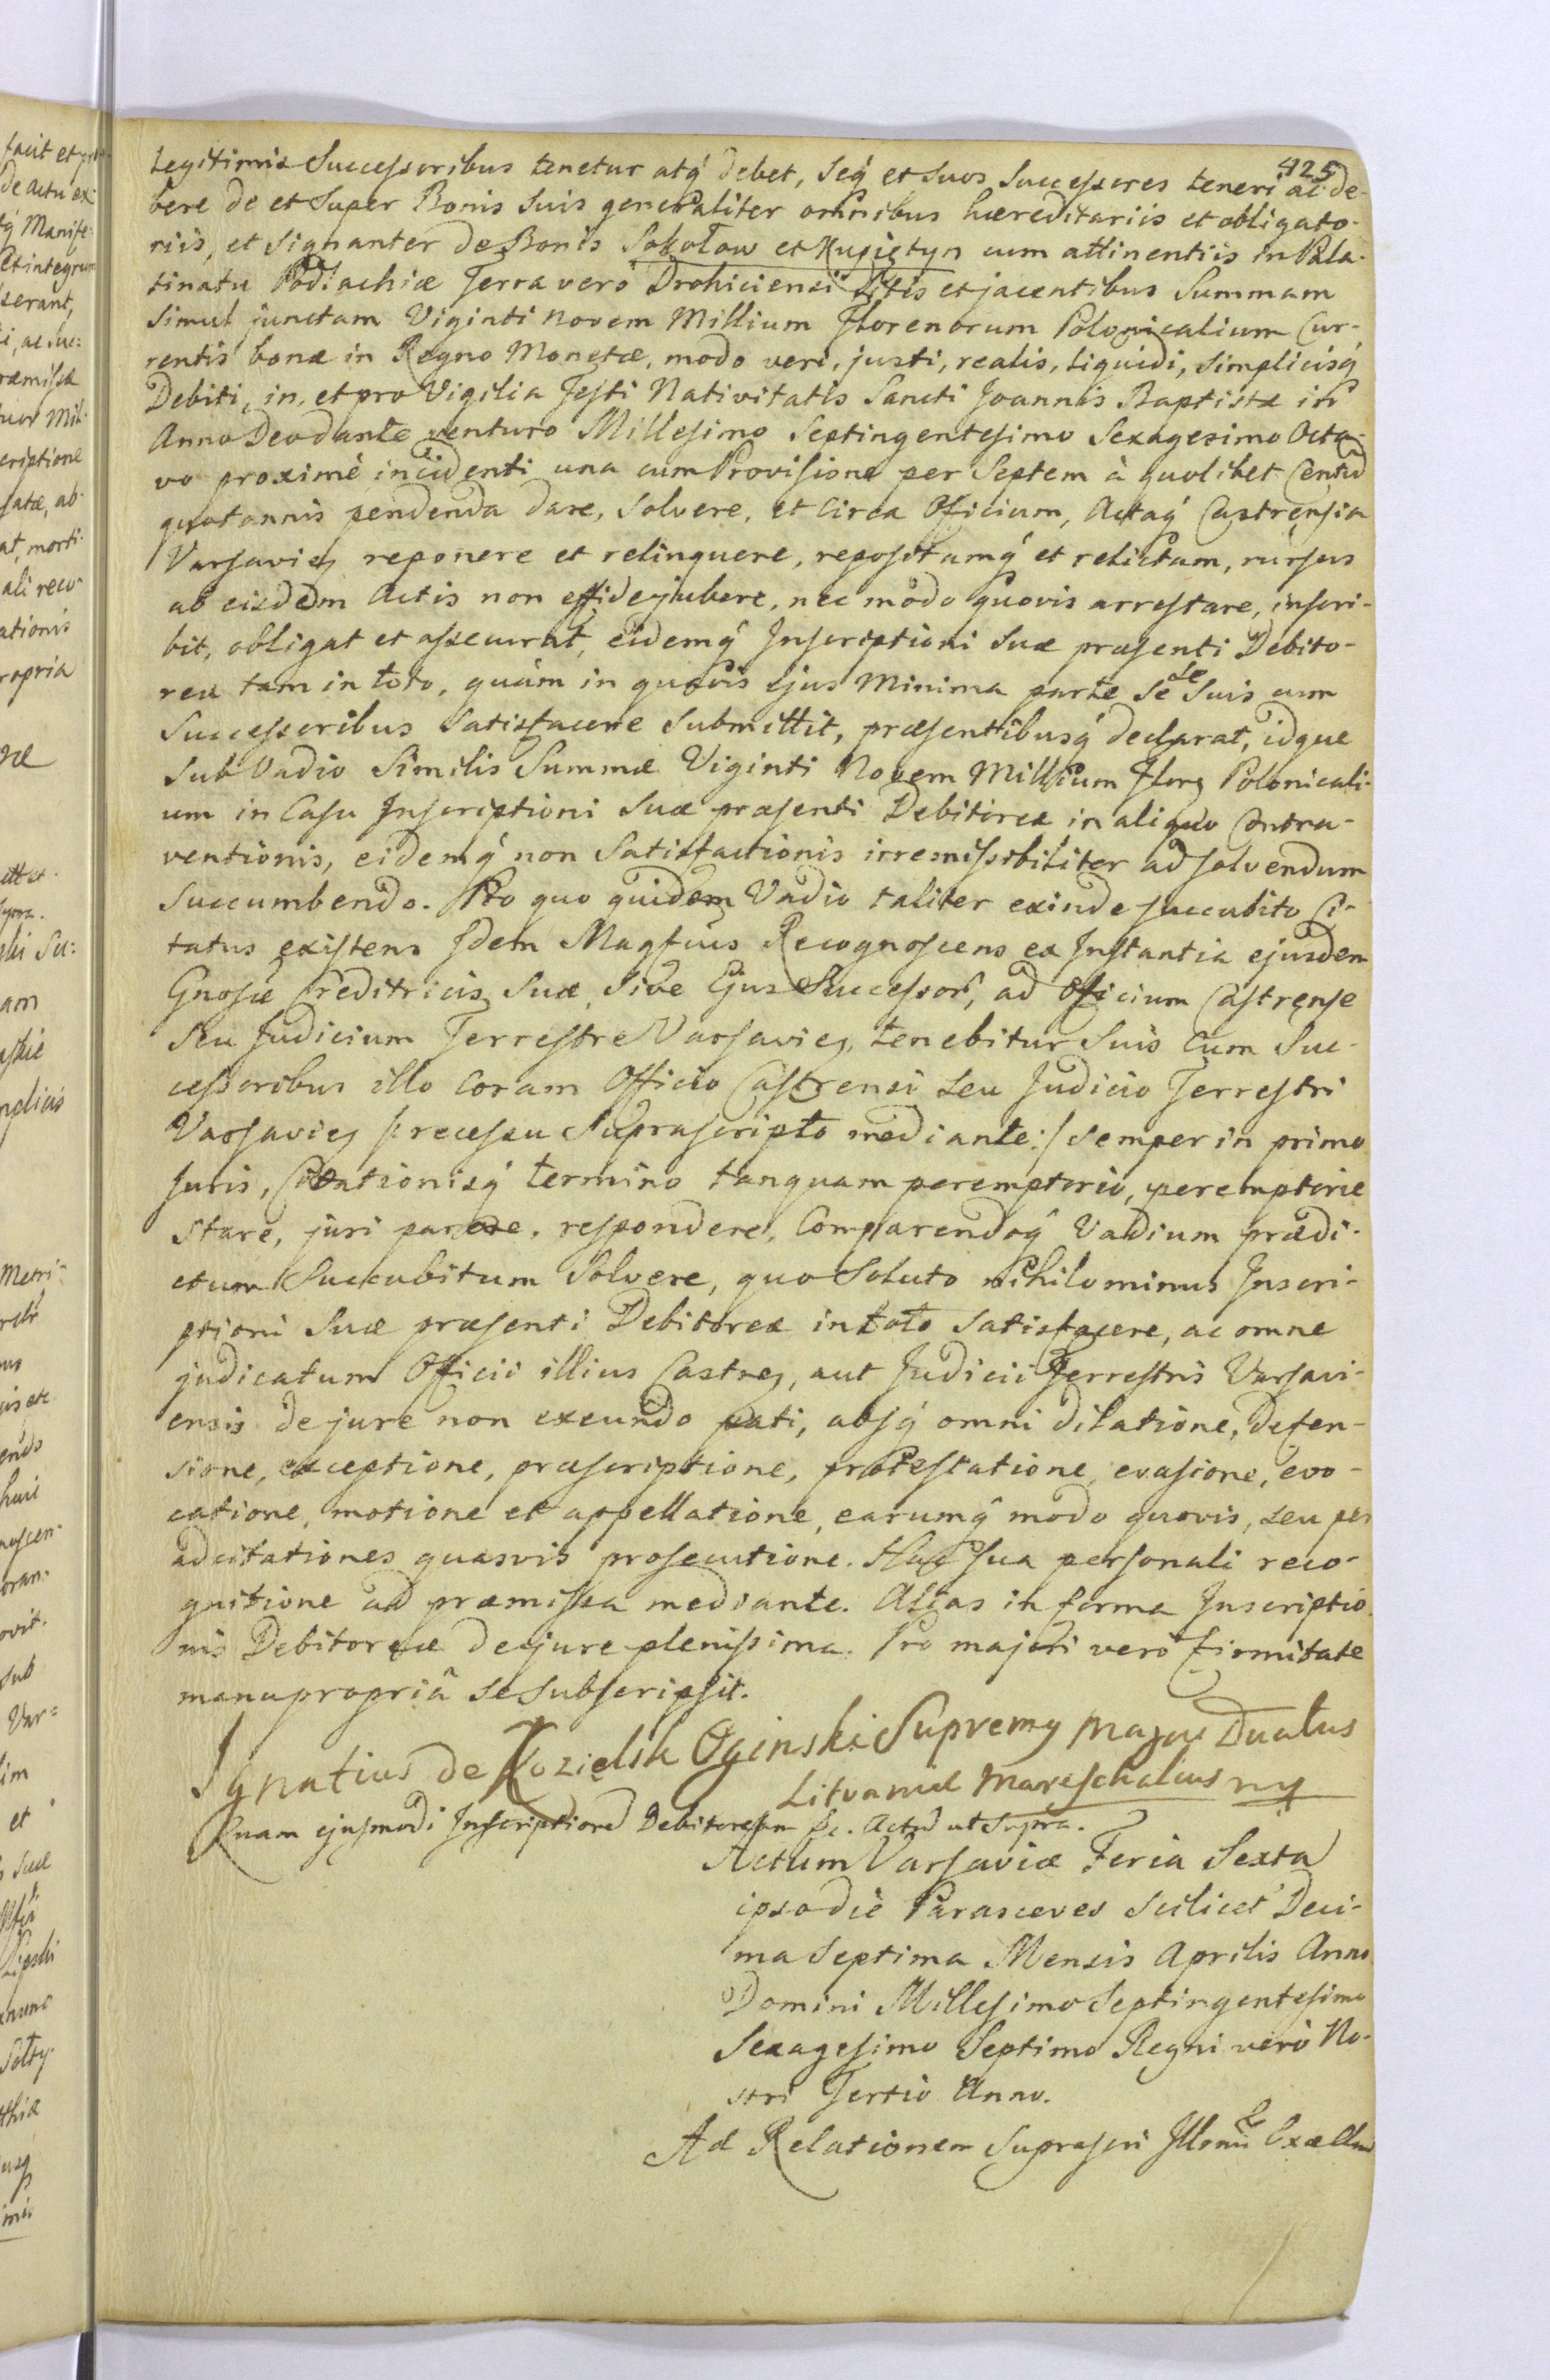 425
Legitimis Successoribus tenetur atq́ debet, Seq́ et suos Successores teneri ac de-
bere de et Super Bonis Suis generaliter omnibus hæreditariis et obligato-
riis, et Signanter de Bonis Sokołow et Kupiętyn cum attinentiis in Pala-
tinatu Podlachiæ Terra verò Drohiciensi Sitis et jacentibus Summam
Simul junctam Viginti novem Millium Florenorum Polonicalium Cur-
rentis bonæ in Regno Monetæ, modo veri, justi, realis, liquidi, simplicisq́
Debiti, in, et pro Vigilia Festi Nativitatis Sancti Joannis Baptistæ in
Anno Deo dante venturo Millesimo Septingentesimo Sexagesimo Octa-
vo proximè incidenti una cum Provisione per Septem à quolibet Centū
quotannis pendenda dare, Solvere, et Circa Officium, Actaq́ Castrensia
Varsavień reponere et relinquere, repositamq́ et relictam, rursus
ab eisdem Actis non effidejubere, nec modo quovis arrestare, inscri-
bit, obligat et assecurat, eidemq́ Inscriptioni Suæ præsenti Debito-
reæ tam in toto, quàm in quavis ejus Minima parte Se se Suis cum
Successoribus Satisfacere Submittit, præsentibusq́ declarat, idque
Sub Vadio Similis Summæ Viginti Novem Millium Flor Polonicali-
um in Casu Inscriptioni Suæ præsenti Debitoreæ in aliquo Contra-
ventionis, eidemq́ non Satisfactionis irremissibiliter ad solvendum
Succumbendo. Pro quo quidem Vadio taliter exinde succubito Ci-
tatus existens Idem Magficus Recognoscens ex Instantia ejusdem
Gnosæ Creditricis Suæ, Sive Ejus Successorũ, ad Officium Castrense
Seu Judicium Terrestre Varsavień, tenebitur Suis Cum Suc-
cessoribus illo Coram Officio Castrensi Seu Judicio Terrestri
Varsavień /: recessu Suprascripto mediante :/ Semper in primo
Juris, Citationisq́ termino tanquam peremptorio, peremptorie
Stare, juri parere, respondere, Comparendoq́ Vadium prædi-
ctum Succubitum Solvere, quo Soluto nihilominus Inscri-
ptioni Suæ præsenti Debitoreæ in toto Satisfacere, ac omne
judicatum Officii illius Castreń, aut Judicii Terrestris Varsavi-
ensis de jure non exeundo pati, absq́ omni dilatione, defen-
sione, exceptione, præscriptione, protestatione, evasione, evo-
catione, motione et appellatione, earumq́ modo quovis, seu per
adcitationes quasvis prosecutione. Hac sua personali reco-
gnitione ad præmissa mediante. Alias in forma Inscriptio-
nis Debitoreæ de jure plenissima. Pro majori verò firmitate
manu propriâ se subscripsit.
Ignatius de Kozielsk Oginski Supremy Magni Ducatus
Litvaniæ Mareschalcus mp
Quam ejusmodi Inscriptionē Debitoream &c. Actū ut Supra.
Actum Varsaviæ Feria Sexta
ipso die Parasceves Scilicet Deci-
ma Septima Mensis Aprilis Anno
Domini Millesimo Septingentesimo
Sexagesimo Septimo Regni verò No-
stri Tertio Anno.
Ad Relationem Suprascri Illsmi Excellm